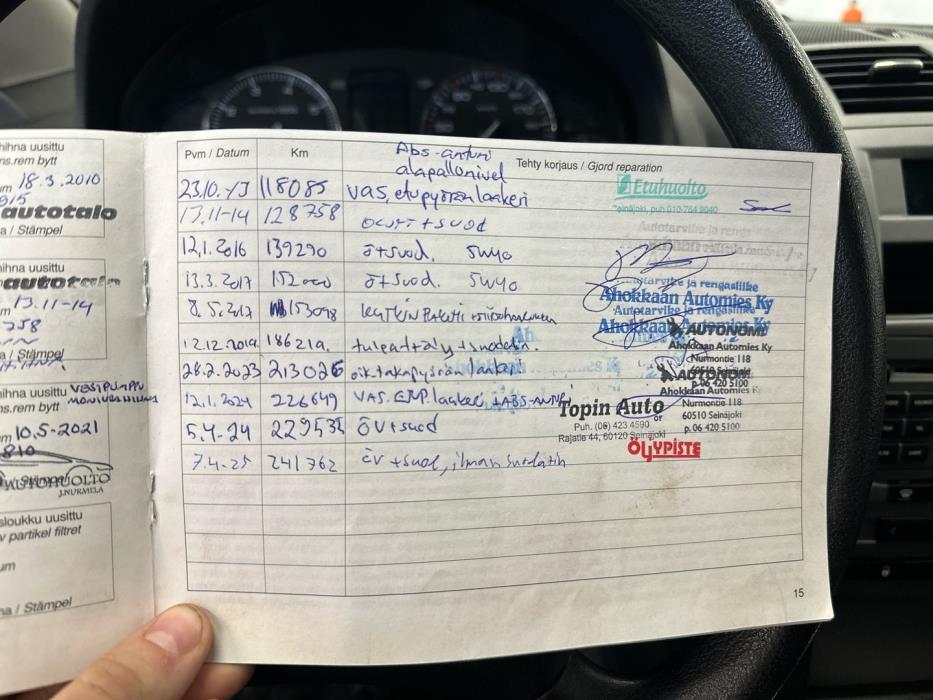 hihna uusittu
ns.rem bytt
m 18.3.2010
autotalo
a / Stämpel
hihna uusittu
ns.rem bytt
m 13.11-14
758
a / Stämpel
hihna uusittu VESIPUMPPU
ns.rem bytt
m 10.5-2021
810
J.NURMELA
sloukku uusittu
v partikel filtret
um
na / Stämpel
Pvm / Datum Km Tehty korjaus / Gjord reparation
Abs-anturi
alapallonivel
23.10.-13 118085 vas, etupyörän laakeri
Etuhuolto
Seinäjoki, puh 010-764 9040
17.11-14 128758 + suod
12.1.2016 139290 ö+suod. 5W40
13.3.2017 152000 ö+suod. 5W40
Autotarvike ja rengasliike
Ahokkaan Automies Ky
8.5.2017 153098
Autotarvike ja rengasliike
Ahokkaan
AUTONOMI
Ahokkaan Automies Ky
Nurmontie 118
60510 Seinäjoki
p. 06 420 5100
12.12.2019. 186219.
28.2.2023 213026 oik. takapyörän laakeri
AUTONOMI
Ahokkaan Automies Ky
Nurmontie 118
60510 Seinäjoki
p. 06 420 5100
12.1.2024 226649 VAS. laakeri + ABS-
5.4-24 229535 ÖV+suod
Topin Auto
Puh. (06) 423 4590
Rajatie 44, 60120 Seinäjoki
7.4-25 241762 öv +suod, ilman
ÖLJYPISTE
15